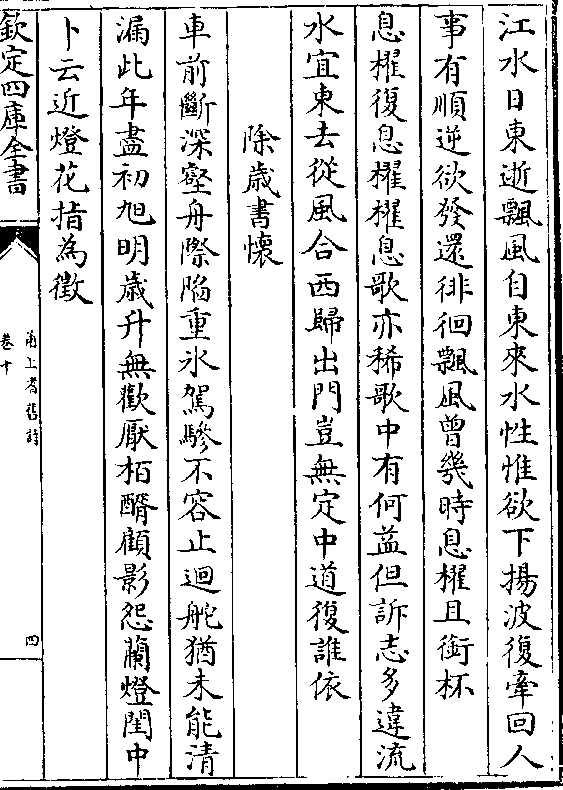 江水日東逝飄風自東來水性惟欲下揚波復牽回人
事有順逆欲發還徘徊飄風曾幾時息櫂且銜杯
息櫂復息櫂櫂息歌亦稀歌中有何益但訴志多違流
水宜東去從風合西歸出門豈無定中道復誰依
除歲書懷
車前斷深壑舟際陷重氷駕驂不容止迴舵猶未能清
漏此年盡初旭明歳升無歡厭栢醑顧影怨蘭燈閨中
卜云近燈花指為徵
欽定四庫全書
甬上耆舊詩
卷十
四